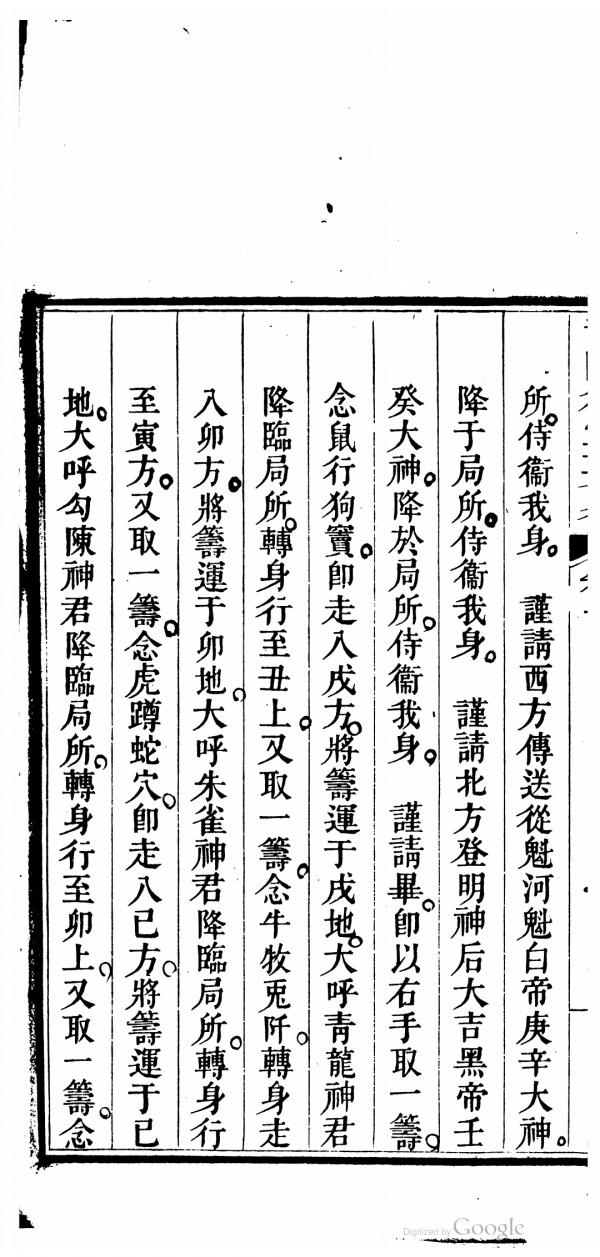 所。侍衞我身。　謹請西方傳送從魁河魁白帝庚辛大神。
降于局所。侍衞我身。　謹請北方登明神后大吉黑帝壬
癸大神。降於局所。侍衞我身。　謹請畢。卽以右手取一籌。
念鼠行狗竇。卽走入戌方。將籌運于戌地。大呼靑龍神君
降臨局所。轉身行至丑上。又取一籌。念牛牧兎阡。轉身走
入卯方。將籌運于卯地。大呼朱雀神君降臨局所。轉身行
至寅方。又取一籌。念虎蹲蛇穴。卽走入巳方。將籌運于巳
地。大呼勾陳神君降臨局所。轉身行至卯上。又取一籌。念
Digitized by Google